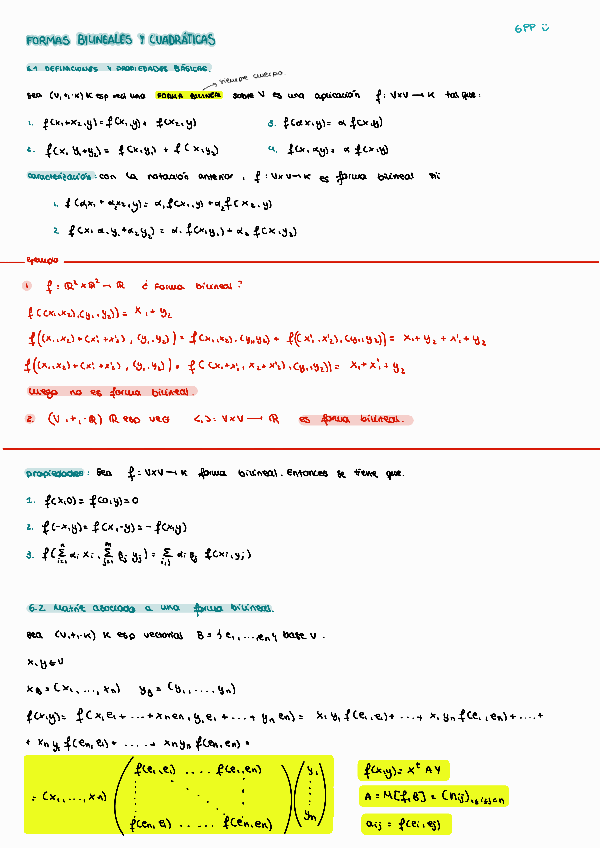 6PP
FORMAS BILINEALES Y CUADRÁTICAS
6.1 DEFINICIONES Y PROPIEDADES BÁSICAS.
siempre cuerpo
Sea (V,+,·K) K esp vect una FORMA BILINEAL sobre V es una aplicación f: V×V → K tal que:
1. f(x₁+x₂,y) = f(x₁,y) + f(x₂,y) 3. f(αx,y) = α f(x,y)
2. f(x,y₁+y₂) = f(x,y₁) + f(x,y₂) 4. f(x,αy) = α f(x,y)
caracterización: con la notación anterior, f: V×V → K es forma bilineal si
1. f(α₁x₁ + α₂x₂,y) = α₁f(x₁,y) + α₂f(x₂,y)
2. f(x,α₁y₁+α₂y₂) = α₁ f(x,y₁) + α₂ f(x,y₂)
Ejemplo
1. f: ℝ²×ℝ² → ℝ ¿ Forma bilineal?
f((x₁,x₂),(y₁,y₂)) = x₁ + y₂
f((x₁,x₂)+(x'₁,x'₂),(y₁,y₂)) = f(x₁,x₂),(y₁,y₂) + f((x'₁,x'₂),(y₁,y₂)) = x₁+y₂+x'₁+y₂
f((x₁,x₂)+(x'₁+x'₂),(y₁,y₂)) = f((x₁+x'₁,x₂+x'₂),(y₁,y₂)) = x₁+x'₁+y₂
luego no es forma bilineal.
2. (V,+,·ℝ) ℝ esp vect <,>: V×V → ℝ es forma bilineal.
propiedades: Sea f: V×V → K forma bilineal. Entonces se tiene que.
1. f(x,0) = f(0,y) = 0
2. f(-x,y) = f(x,-y) = -f(x,y)
3. f(∑ᵢ₌₁ⁿ αᵢ xᵢ, ∑ⱼ₌₁ᵐ βⱼ yⱼ) = ∑ᵢ,ⱼ αᵢ βⱼ f(xᵢ,yⱼ)
6.2 Matriz asociada a una forma bilineal.
Sea (V,+,·K) K esp vectorial B = {e₁,...,eₙ} base V.
x,y ∈ V
x_B = (x₁,...,xₙ) y_B = (y₁,...,yₙ)
f(x,y) = f(x₁e₁+...+xₙeₙ, y₁e₁+...+yₙeₙ) = x₁y₁f(e₁,e₁)+...+ x₁yₙf(e₁,eₙ)+...+
+ xₙy₁f(eₙ,e₁)+.....+ xₙyₙf(eₙ,eₙ) =
f(e₁,e₁) .... f(e₁,eₙ) y₁
= (x₁,...,xₙ)
f(eₙ,e₁) ..... f(eₙ,eₙ) yₙ
f(x,y) = xᵗ A y
A = M[f,B] = (aᵢⱼ)₁≤ᵢ,ⱼ≤ₙ
aᵢⱼ = f(eᵢ,eⱼ)